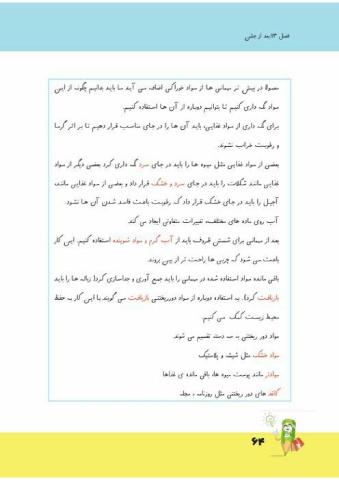 فصل ۱۳:بعد از جشن
معمولا در بیش تر میمانی ها از مواد خوراکی اضافه می آید ما باید بدانیم چگونه از این
مواد نگه داری کنیم تا بتوانیم دوباره از آن ها استفاده کنیم.
برای نگه داری از مواد غذایی، باید آن ها را در جای مناسب قرار دهیم تا بر اثر گرما
و رطوبت خراب نشوند.
بعضی از مواد غذایی مثل میوه ها را باید در جای سرد نگه داری کرد بعضی دیگر از مواد
غذایی مانند شکلات را باید در جای سرد و خشک قرار داد و بعضی از مواد غذایی مانند،
آجیل را باید در جای خشک قرار داد که رطوبت باعث فاسد شدن آن ها نشود.
آب روی ماده های مختلف، تغییرات متفاوتی ایجاد می کند.
بعد از میمانی برای شستن ظروف باید از آب گرم و مواد شوینده استفاده کنیم. این کار
باعث می شود که چربی ها راحت تر از بین بروند.
باقی مانده مواد استفاده شده در میمانی را باید جمع آوری و جداسازی کرد( زباله ها را باید
بازیافت کرد). به استفاده دوباره از مواد دورریختنی بازیافت می گویند.با این کار به حفظ
محیط زیست کمک می کنیم.
مواد دور ریختنی به سه دسته تقسیم می شوند.
مواد خشک مثل شیشه و پلاستیک
موادتر مانند پوست میوه ها، باقی مانده ی غذاها
کاغذ های دور ریختنی مثل روزنامه ، مجله
۶۴